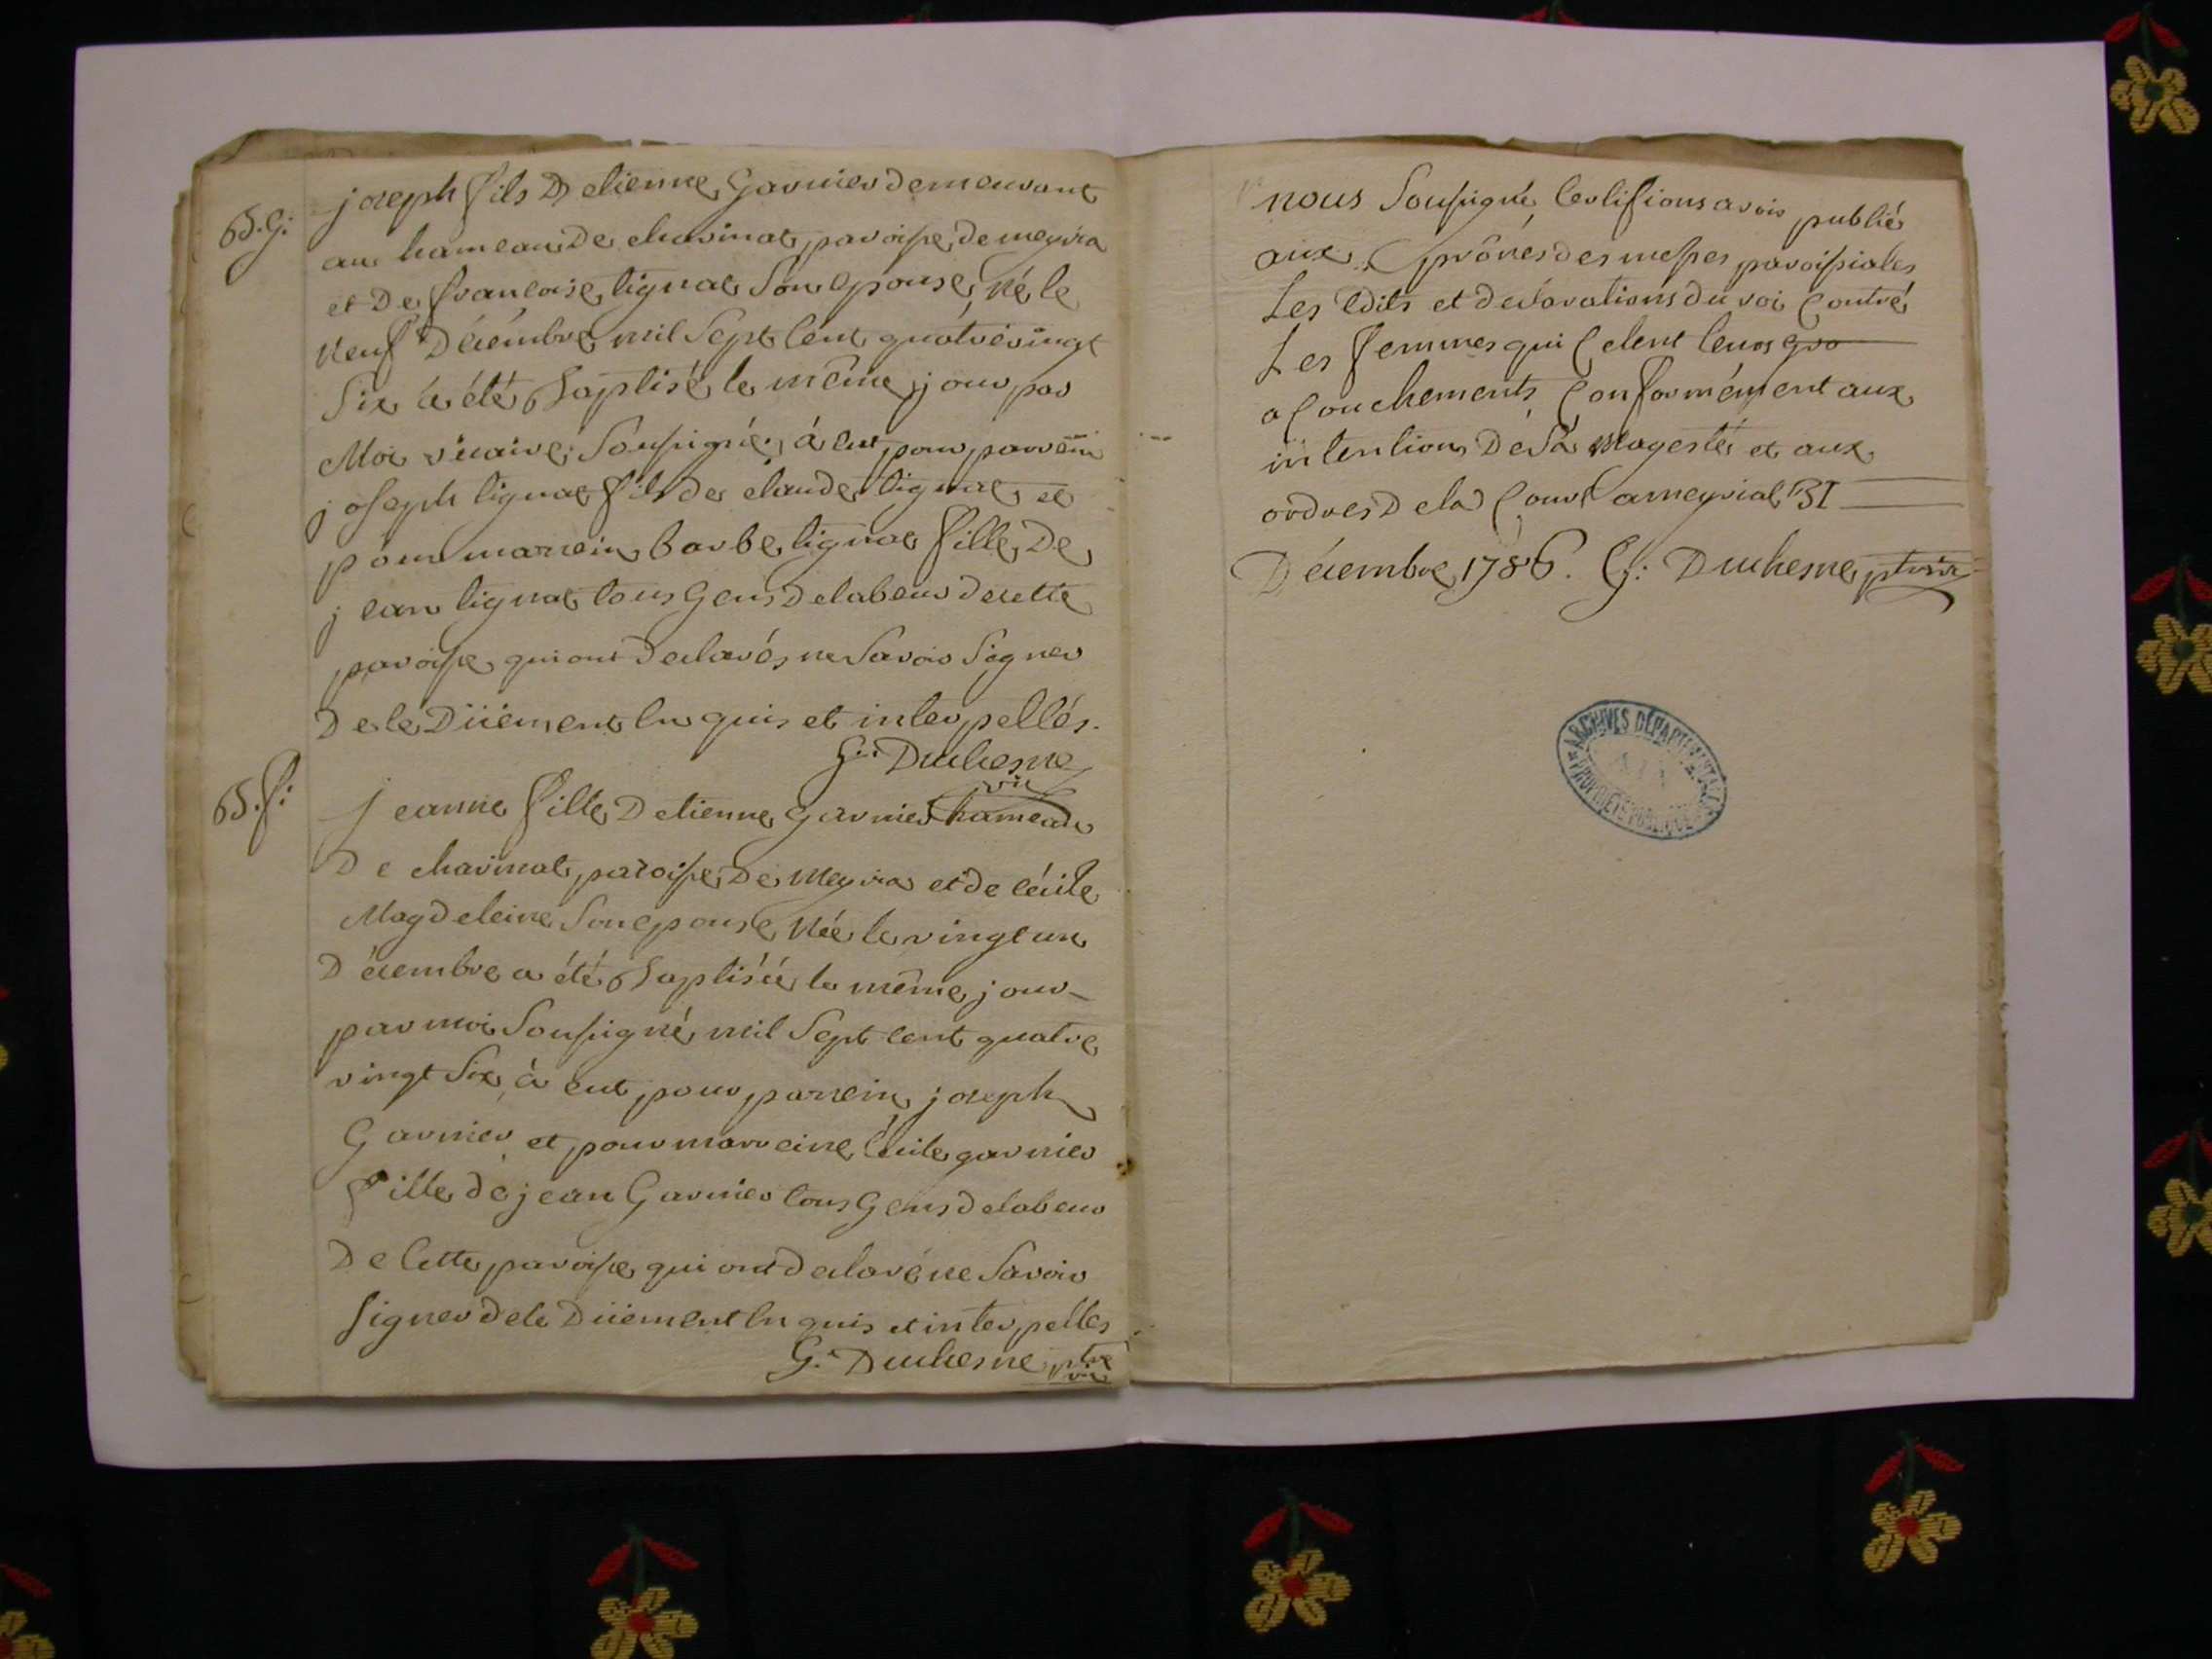 B. G:
joseph fils D etienne Garnier demeurant
au hameau De charinat, paroisse de meyria
et De francoise tignat Son epouse, Né le
Neuf Décémbre mil Sept Cent quatrevingt
Six á été Baptisé le même jour par
Moi vicaire Soussigné; á eut pour parrein
joseph tignat fils de claude tignat et
pour marrein barbe tignat fille De
jean tignat tous Gens Delabeur decette
paroisse qui ont declarés ne Savoir Signer
De ce Düement Enquis et interpellés.
G: Duchesne
vic
B. f:
jeanne fille D etienne Garnier hameau
De charinat, paroisse De Meyria et de Cécile
Magdeleine Son epouse Née le vingt un
Décembre a été Baptisée le même jour
par moi Soussigné mil Sept cent quatre
vingt Six, á eut pour parrein joseph
Garnier et pour marreine Cécile garnier
fille de jean Garnier tous Gens Delabeur
De Cette paroisse qui ont declaré ne Savoir
Signer de ce Düement Enquis et interpelles
G: Duchesne ptre
vic
nous Soussigné, Certifions avoir publié
aux prônes des messes paroissiales
Les Edits et declarations du roi Contre
Les femmes qui Celent leurs gro
acouchements Conformément aux
intentions De Sa Magesté et aux
ordres De la Cour a meyriat 31
Décembre 1786. G: Duchesne, ptre vic
ARCHIVES DÉPARTEMENTALES
PROPRIÉTÉ PUBLIQUE